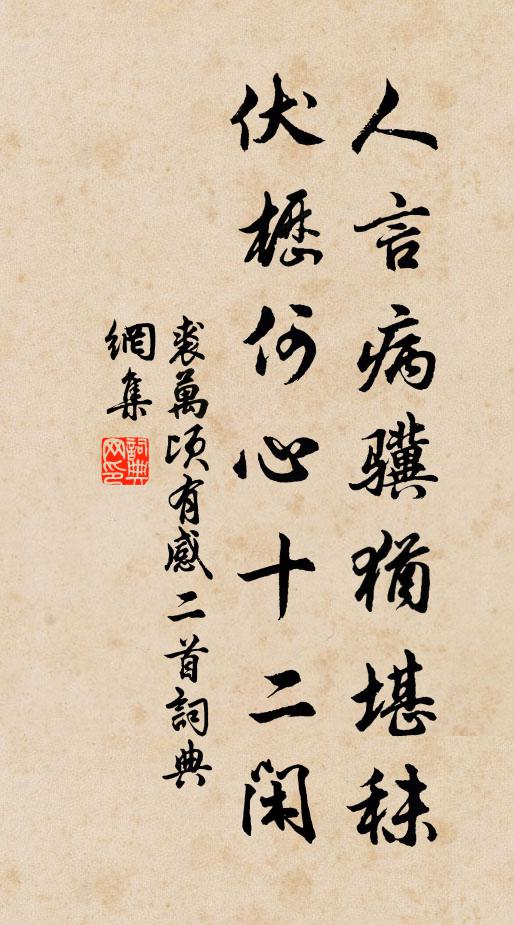 人言病骥猶堪秣
伏櫪何心十二閑
裘萬頃有感二首詞典
網集
詞典
网印